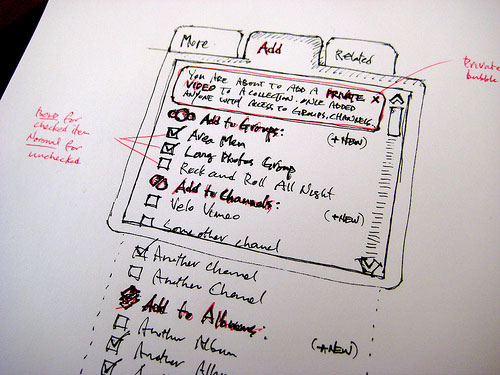 More
Add
Related
YOU ARE ABOUT TO ADD A PRIVATE
VIDEO TO A COLLECTION. ONCE ADDED
ANYONE WITH ACCESS TO GROUPS, CHANNELS,
x
Private
bubble
Add to Groups:
(+NEW)
Area Men
Long Photos Group
Rock and Roll All Night
Add to Channels:
(+NEW)
Velo Vimeo
Some other chanel
Another channel
Another Channel
Add to Albums:
(+NEW)
Another Album
Another
Bold for
checked item
Normal for
unchecked